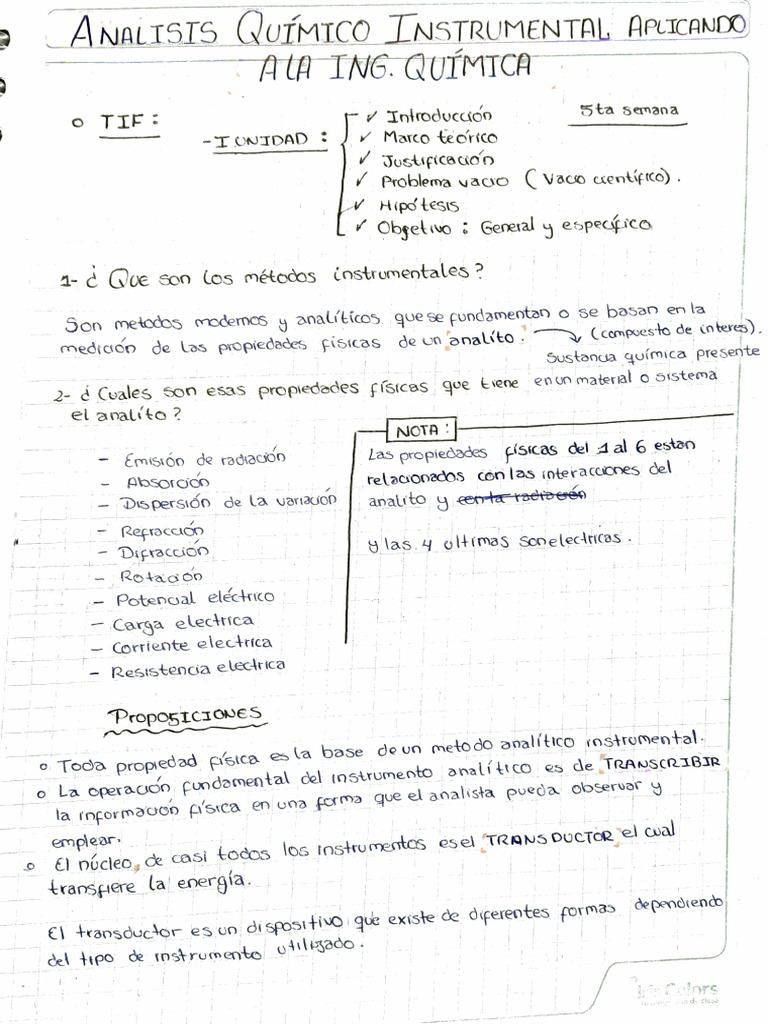 ANALISIS QUÍMICO INSTRUMENTAL APLICANDO
A LA ING. QUÍMICA
o TIF:
5ta semana
- I UNIDAD :
✓ Introducción
✓ Marco teórico
✓ Justificación
✓ Problema vacio (Vacio científico).
✓ Hipótesis
✓ Objetivo : General y específico
1- ¿ Que son los métodos instrumentales ?
Son metodos modernos y analíticos que se fundamentan o se basan en la
medición de las propiedades físicas de un analíto. → (compuesto de interes).
Sustancia química presente
en un material o sistema
2- ¿ Cuales son esas propiedades físicas que tiene
el analíto ?
- Emisión de radiación
- Absorción
- Dispersión de la variación
- Refracción
- Difracción
- Rotación
- Potencial eléctrico
- Carga electrica
- Corriente electrica
- Resistencia electrica
NOTA :
Las propiedades físicas del 1 al 6 estan
relacionados con las interacciones del
analito y con la radiación
y las 4 ultimas son electricas.
PROPOSICIONES
o Toda propiedad física es la base de un metodo analítico instrumental.
o La operación fundamental del instrumento analítico es de TRANSCRIBIR
la información física en una forma que el analista pueda observar y
emplear.
o El núcleo, de casi todos los instrumentos es el TRANSDUCTOR el cual
transfiere la energía.
El transductor es un dispositivo que existe de diferentes formas dependiendo
del tipo de instrumento utilizado.